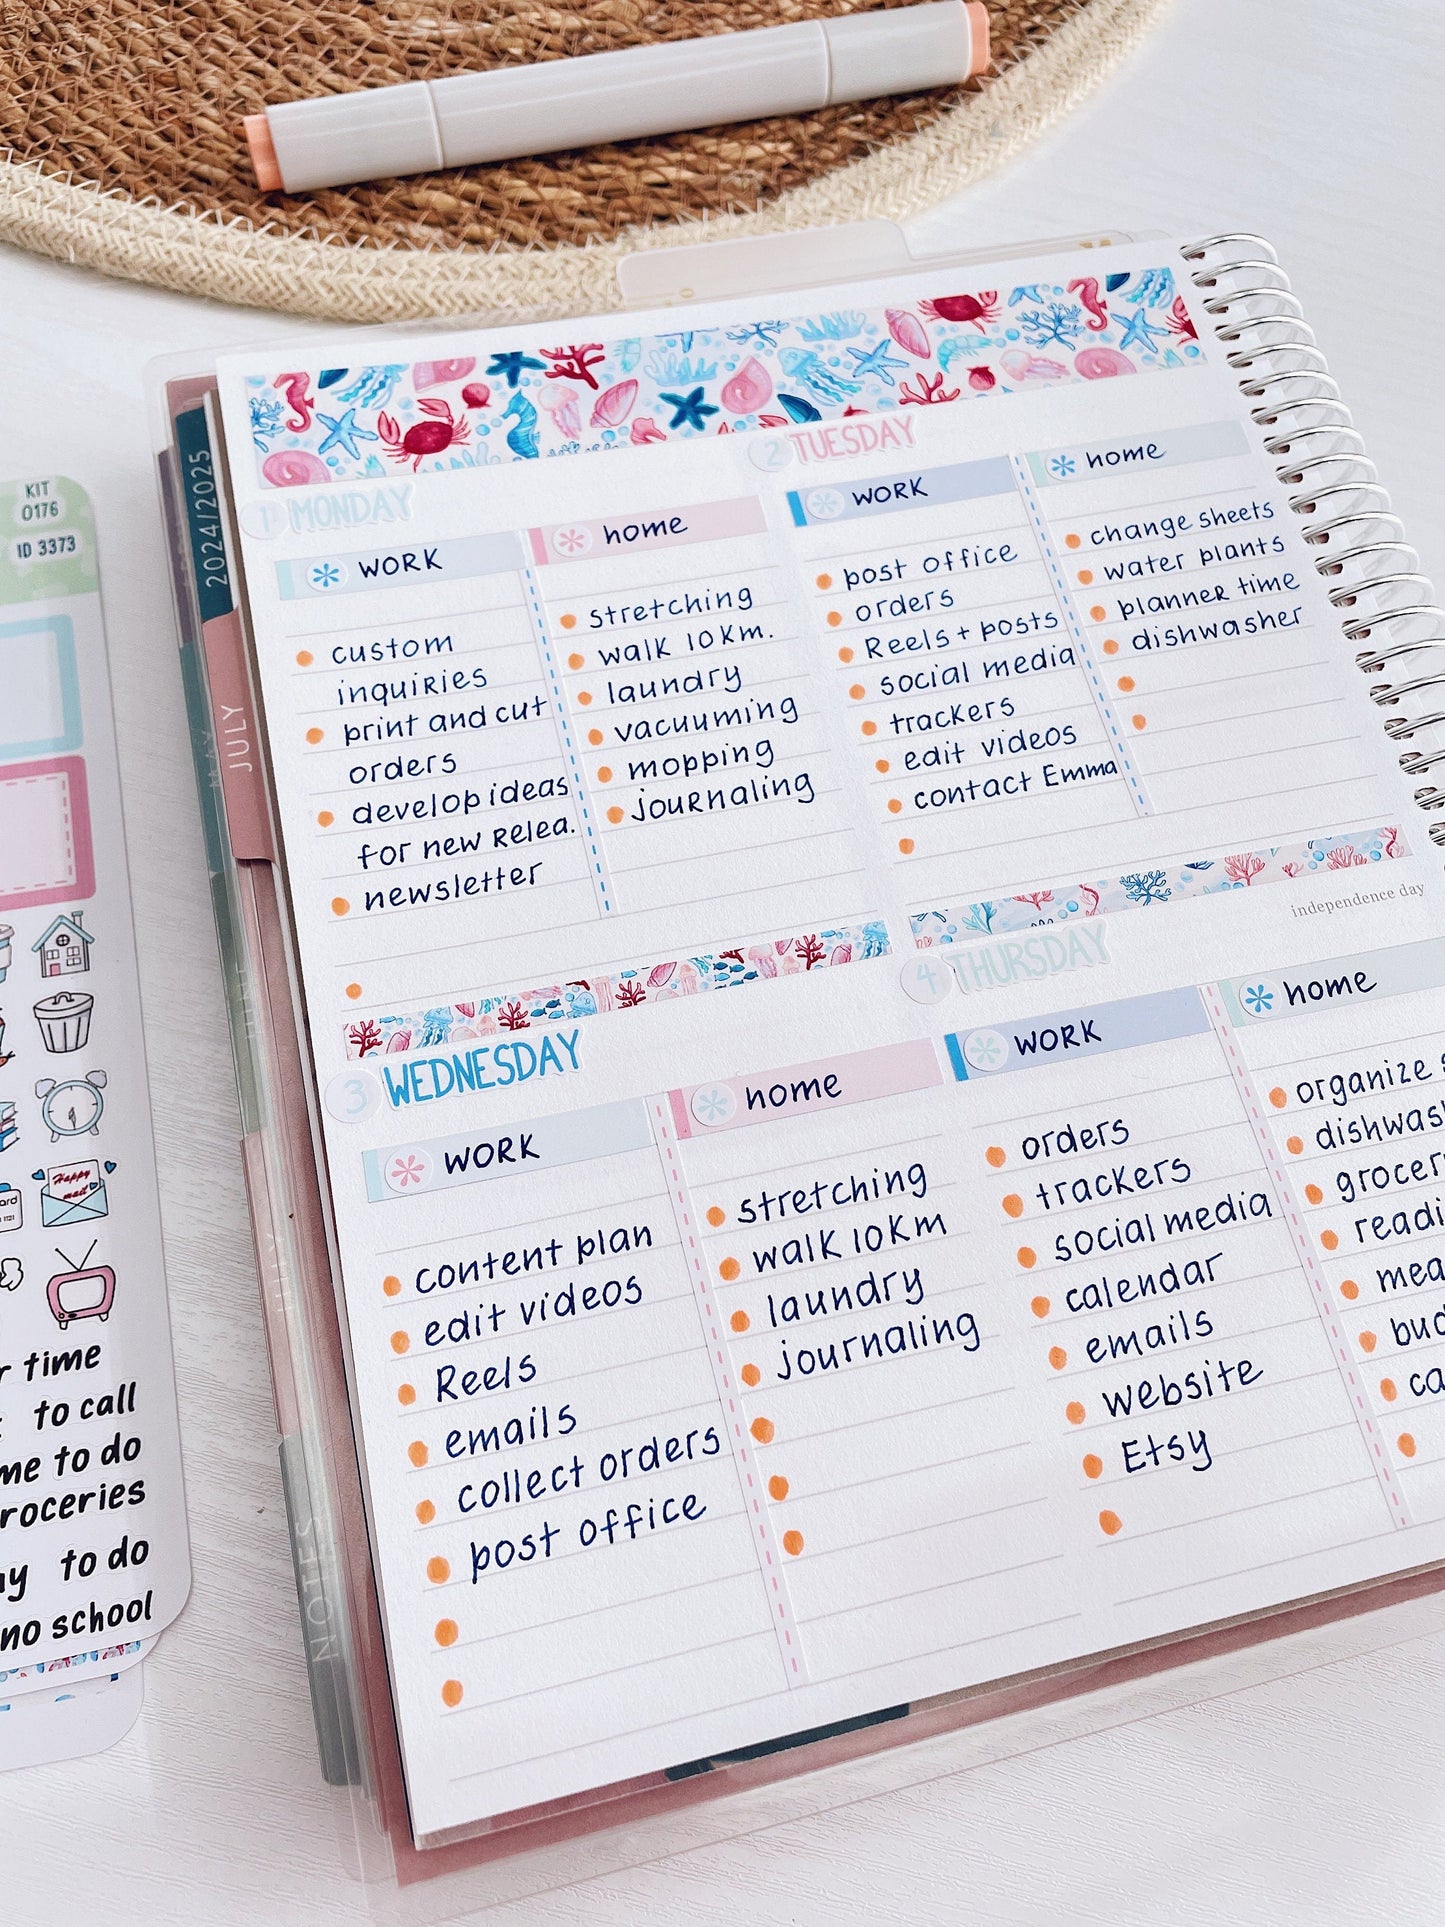 KIT
0176
ID 3373
2024/2025
JULY
MAY
JULY
NOTES
time
to call
to do
to do
no school
1 MONDAY
WORK
custom
inquiries
print and cut
orders
develop ideas
for new Relea.
newsletter
home
stretching
walk 10Km.
laundry
vacuuming
mopping
journaling
2 TUESDAY
WORK
post office
orders
Reels + posts
social media
trackers
edit videos
contact Emma
home
change sheets
water plants
planner time
dishwasher
3 WEDNESDAY
WORK
content plan
edit videos
Reels
emails
collect orders
post office
home
stretching
walk 10Km
laundry
journaling
independence day
4 THURSDAY
WORK
orders
trackers
social media
calendar
emails
website
Etsy
home
organize
Happy
mail